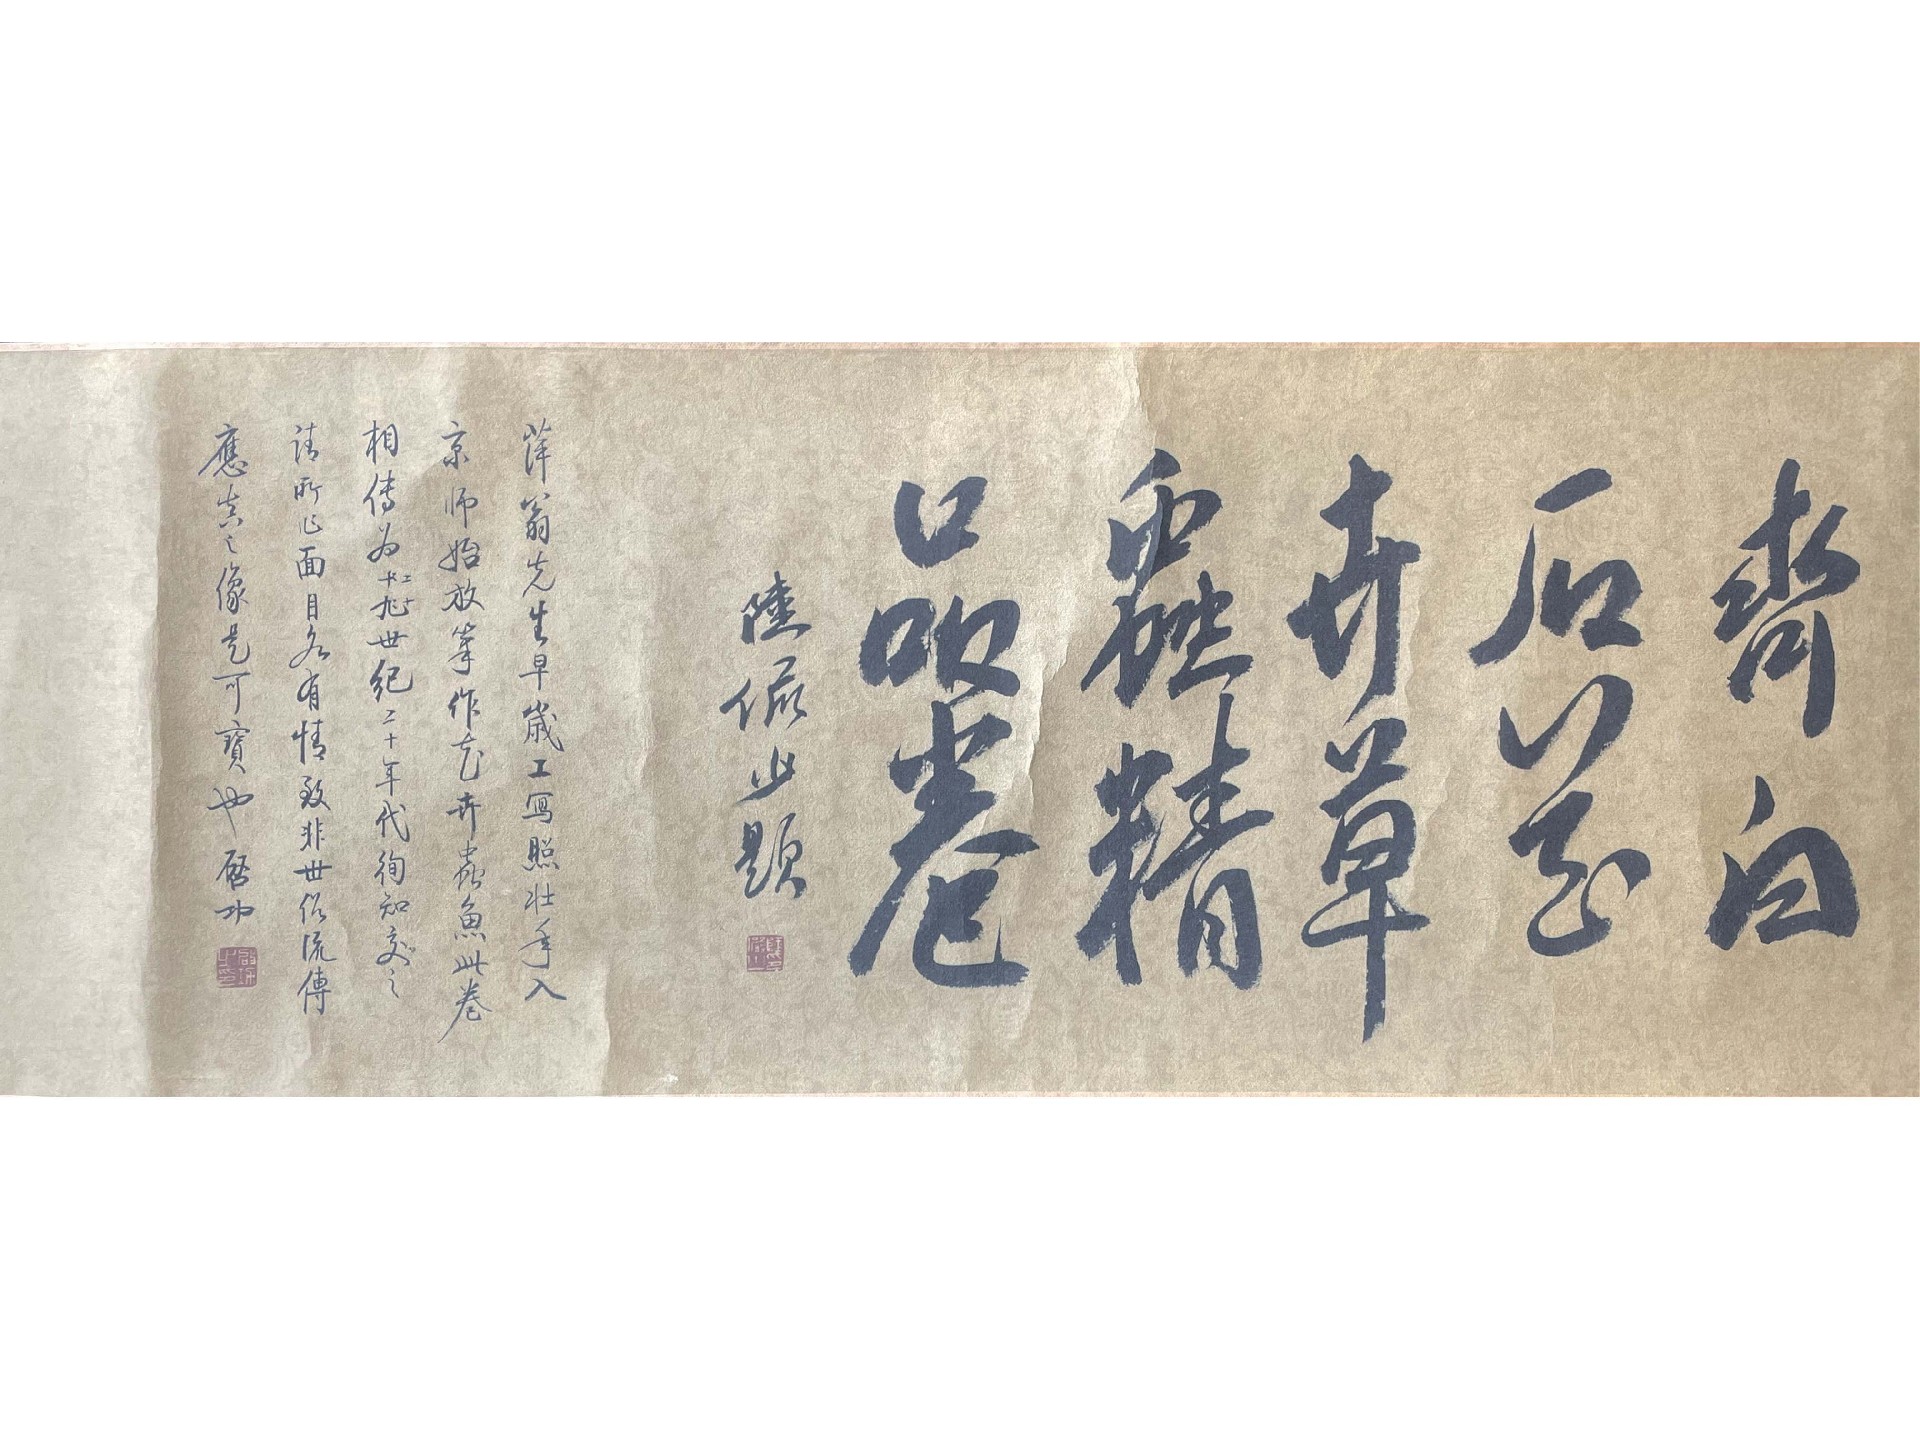 齊白
石花
卉草
蟲精
品卷
陸俨少題
萍翁先生早歲工寫照壮年入
京師始放筆作花卉蟲魚此卷
相傳为二十世紀二十年代徇知交之
请所作面目各有情致非世俗流傳
應真之像是可寶也启功